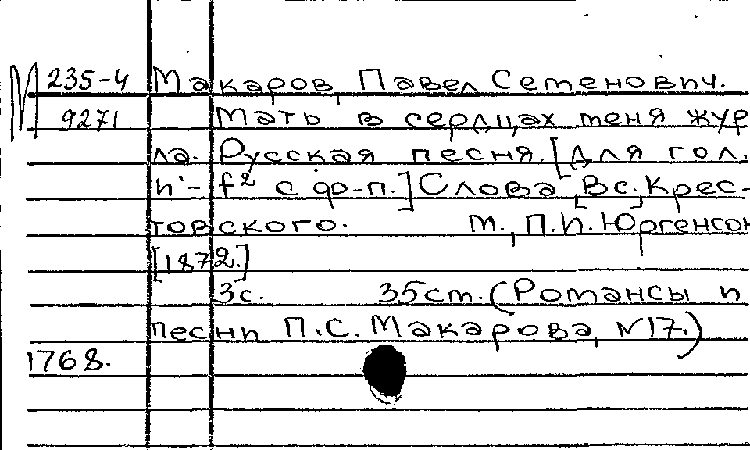 М 235-4 Макаров, Павел Семенович.
9271 Мать в сердцах меня жур
ла. Русская песня. [Для гол.
h¹-f² с ф-п.] Слова [Вс.] Крес-
товского. М., П.И. Юргенсон
[1872.]
3с. 35ст. (Романсы и
песни П.С. Макарова, N17.)
1768.